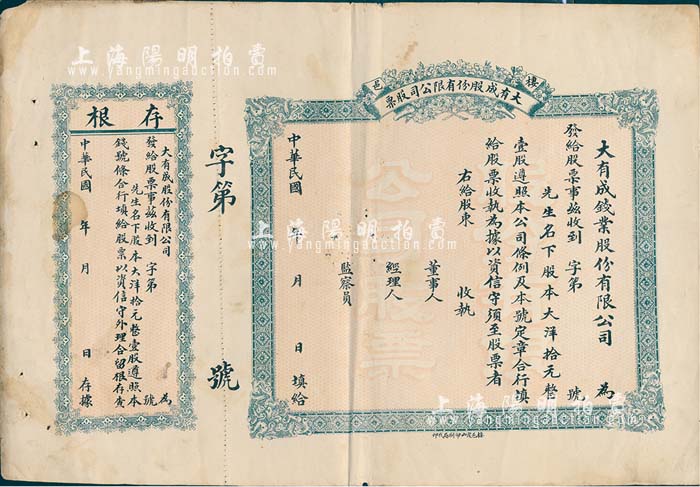 上海陽明拍賣
www.yangmingauction.com
大有成股份有限公司股票
大有成錢業股份有限公司 為
發給股票事茲收到 字第 號
先生名下股本大洋拾元整
壹股遵照本公司條例及本號定章合行填
給股票收執為據以資信守須至股票者
右給股東 收執
董事人
經理人
監察員
中華民國 年 月 日 填給
公司股票
字第 號
存根
大有成股份有限公司 為
發給股票事茲收到 字第 號
先生名下股本大洋拾元整壹股遵照本
錢號條合行填給股票以資信守外理合留根存查
中華民國 年 月 日 存據
上海陽明拍賣
www.yangmingauction.com
上海陽明拍賣
www.yangmingauction.com